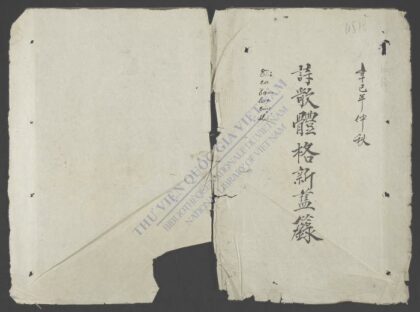 辛巳年仲秋
詩歌體格新蓝籙
THƯ VIỆN QUỐC GIA VIỆT NAM
BIBLIOTHÈQUE NATIONALE DU VIETNAM
NATIONAL LIBRARY OF VIETNAM